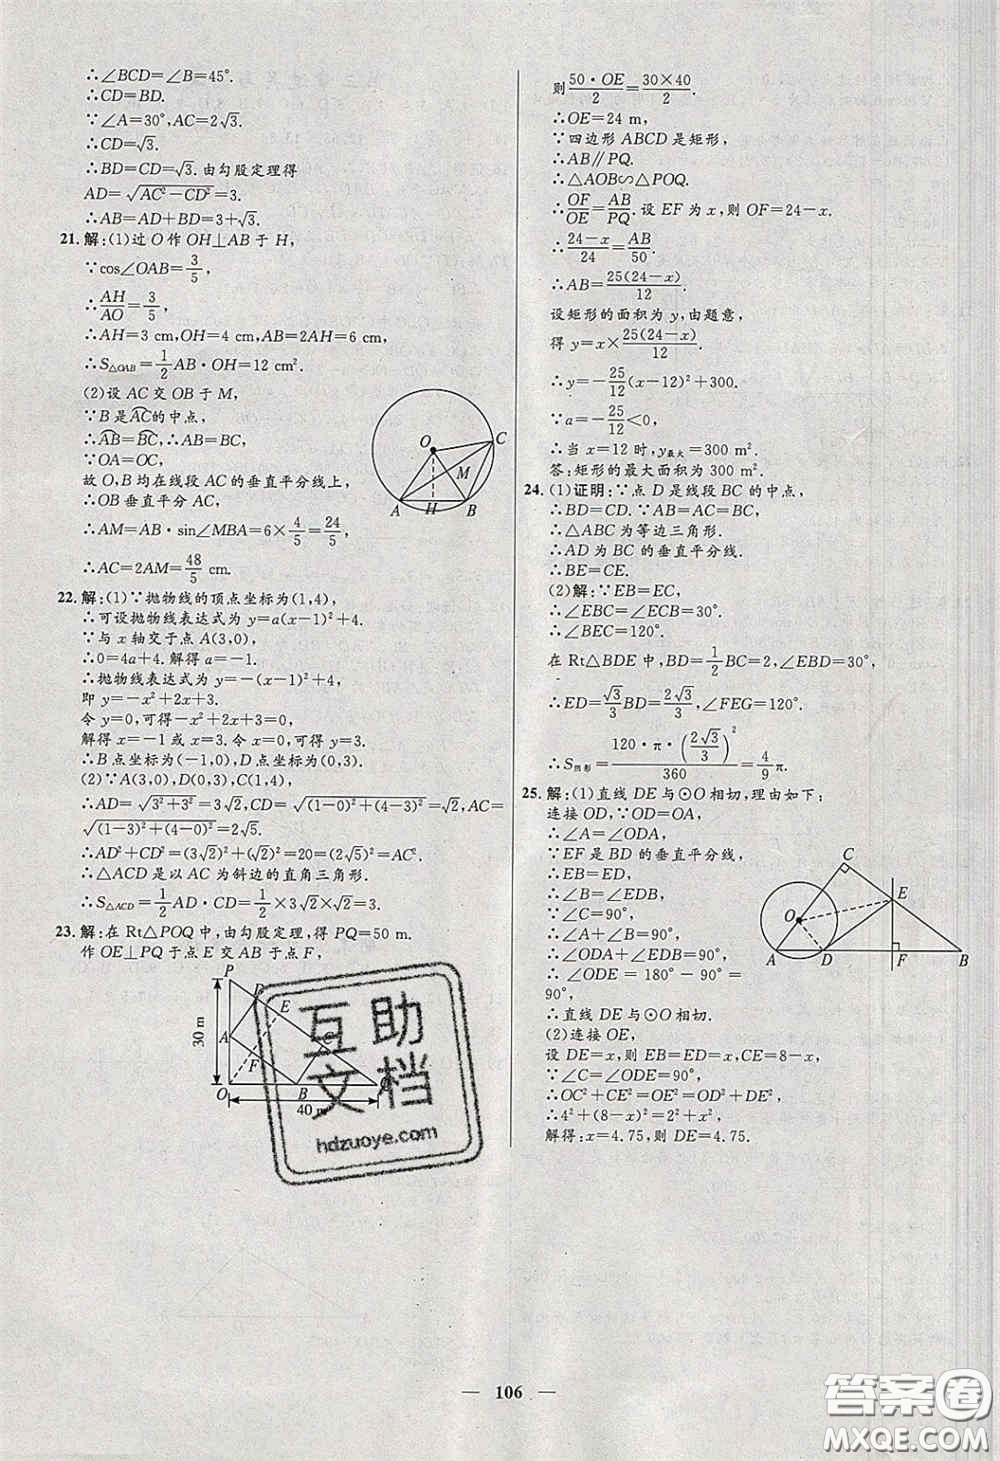 ∴∠BCD=∠B=45°.
∴CD=BD.
∵∠A=30°,AC=2√3.
∴CD=√3.
∴BD=CD=√3.由勾股定理得
AD=√(AC²-CD²)=3.
∴AB=AD+BD=3+√3.
21.解:(1)过O作OH⊥AB于H,
∵cos∠OAB=3/5,
∴AH/AO=3/5,
∴AH=3 cm,OH=4 cm,AB=2AH=6 cm,
∴S△OAB=1/2 AB·OH=12 cm².
(2)设AC交OB于M,
∵B是AC的中点,
∴AB=BC,∴AB=BC,
∵OA=OC,
故O,B均在线段AC的垂直平分线上,
∴OB垂直平分AC,
∴AM=AB·sin∠MBA=6×4/5=24/5,
∴AC=2AM=48/5 cm.
O
C
M
A
H
B
22.解:(1)∵抛物线的顶点坐标为(1,4),
∴可设抛物线表达式为y=a(x-1)²+4.
∵与x轴交于点A(3,0),
∴0=4a+4.解得a=-1.
∴抛物线表达式为y=-(x-1)²+4,
即y=-x²+2x+3.
令y=0,可得-x²+2x+3=0.
解得x=-1或x=3.令x=0,可得y=3.
∴B点坐标为(-1,0),D点坐标为(0,3).
(2)∵A(3,0),D(0,3),C(1,4),
∴AD=√(3²+3²)=3√2,CD=√((1-0)²+(4-3)²)=√2,AC=
√((1-3)²+(4-0)²)=2√5.
∴AD²+CD²=(3√2)²+(√2)²=20=(2√5)²=AC².
∴△ACD是以AC为斜边的直角三角形.
∴S△ACD=1/2 AD·CD=1/2×3√2×√2=3.
23.解:在Rt△POQ中,由勾股定理,得PQ=50 m.
作OE⊥PQ于点E交AB于点F,
P
E
A
F
O
B
30 m
40 m
互助
文档
hdzuoye.com
则50·OE/2=30×40/2.
∴OE=24 m,
∵四边形ABCD是矩形,
∴AB∥PQ.
∴△AOB∽△POQ.
∴OF/OE=AB/PQ.设EF为x,则OF=24-x.
∴24-x/24=AB/50.
∴AB=25(24-x)/12.
设矩形的面积为y,由题意,
得y=x×25(24-x)/12.
∴y=-25/12(x-12)²+300.
∵a=-25/12<0,
∴当x=12时,y最大=300 m².
答:矩形的最大面积为300 m².
24.(1)证明:∵点D是线段BC的中点,
∴BD=CD.∵AB=AC=BC,
∴△ABC为等边三角形.
∴AD为BC的垂直平分线.
∴BE=CE.
(2)解:∵EB=EC,
∴∠EBC=∠ECB=30°.
∴∠BEC=120°.
在Rt△BDE中,BD=1/2 BC=2,∠EBD=30°,
∴ED=√3/3 BD=2√3/3,∠FEG=120°.
∴S扇形=120·π·(2√3/3)²/360=4/9π.
25.解:(1)直线DE与⊙O相切,理由如下:
连接OD,∵OD=OA,
∴∠A=∠ODA,
∵EF是BD的垂直平分线,
∴EB=ED,
∴∠B=∠EDB,
∵∠C=90°,
∴∠A+∠B=90°,
∴∠ODA+∠EDB=90°,
∴∠ODE=180°-90°=
90°,
∴直线DE与⊙O相切.
(2)连接OE,
设DE=x,则EB=ED=x,CE=8-x,
∵∠C=∠ODE=90°,
∴OC²+CE²=OE²=OD²+DE²,
∴4²+(8-x)²=2²+x²,
解得:x=4.75,则DE=4.75.
C
E
O
A
D
F
B
— 106 —
答案圈
MXQE.COM